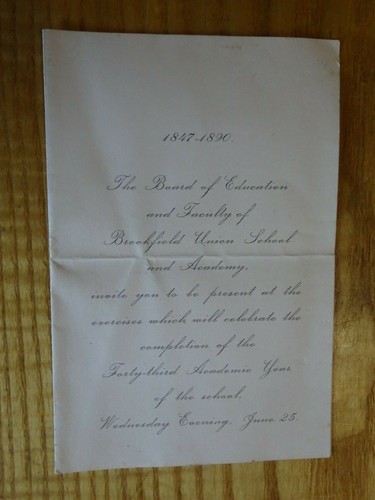 1847-1890.
The Board of Education
and Faculty of
Brookfield Union School
and Academy,
invite you to be present at the
exercises which will celebrate the
completion of the
Forty-third Academic Year
of the school,
Wednesday Evening, June 25.